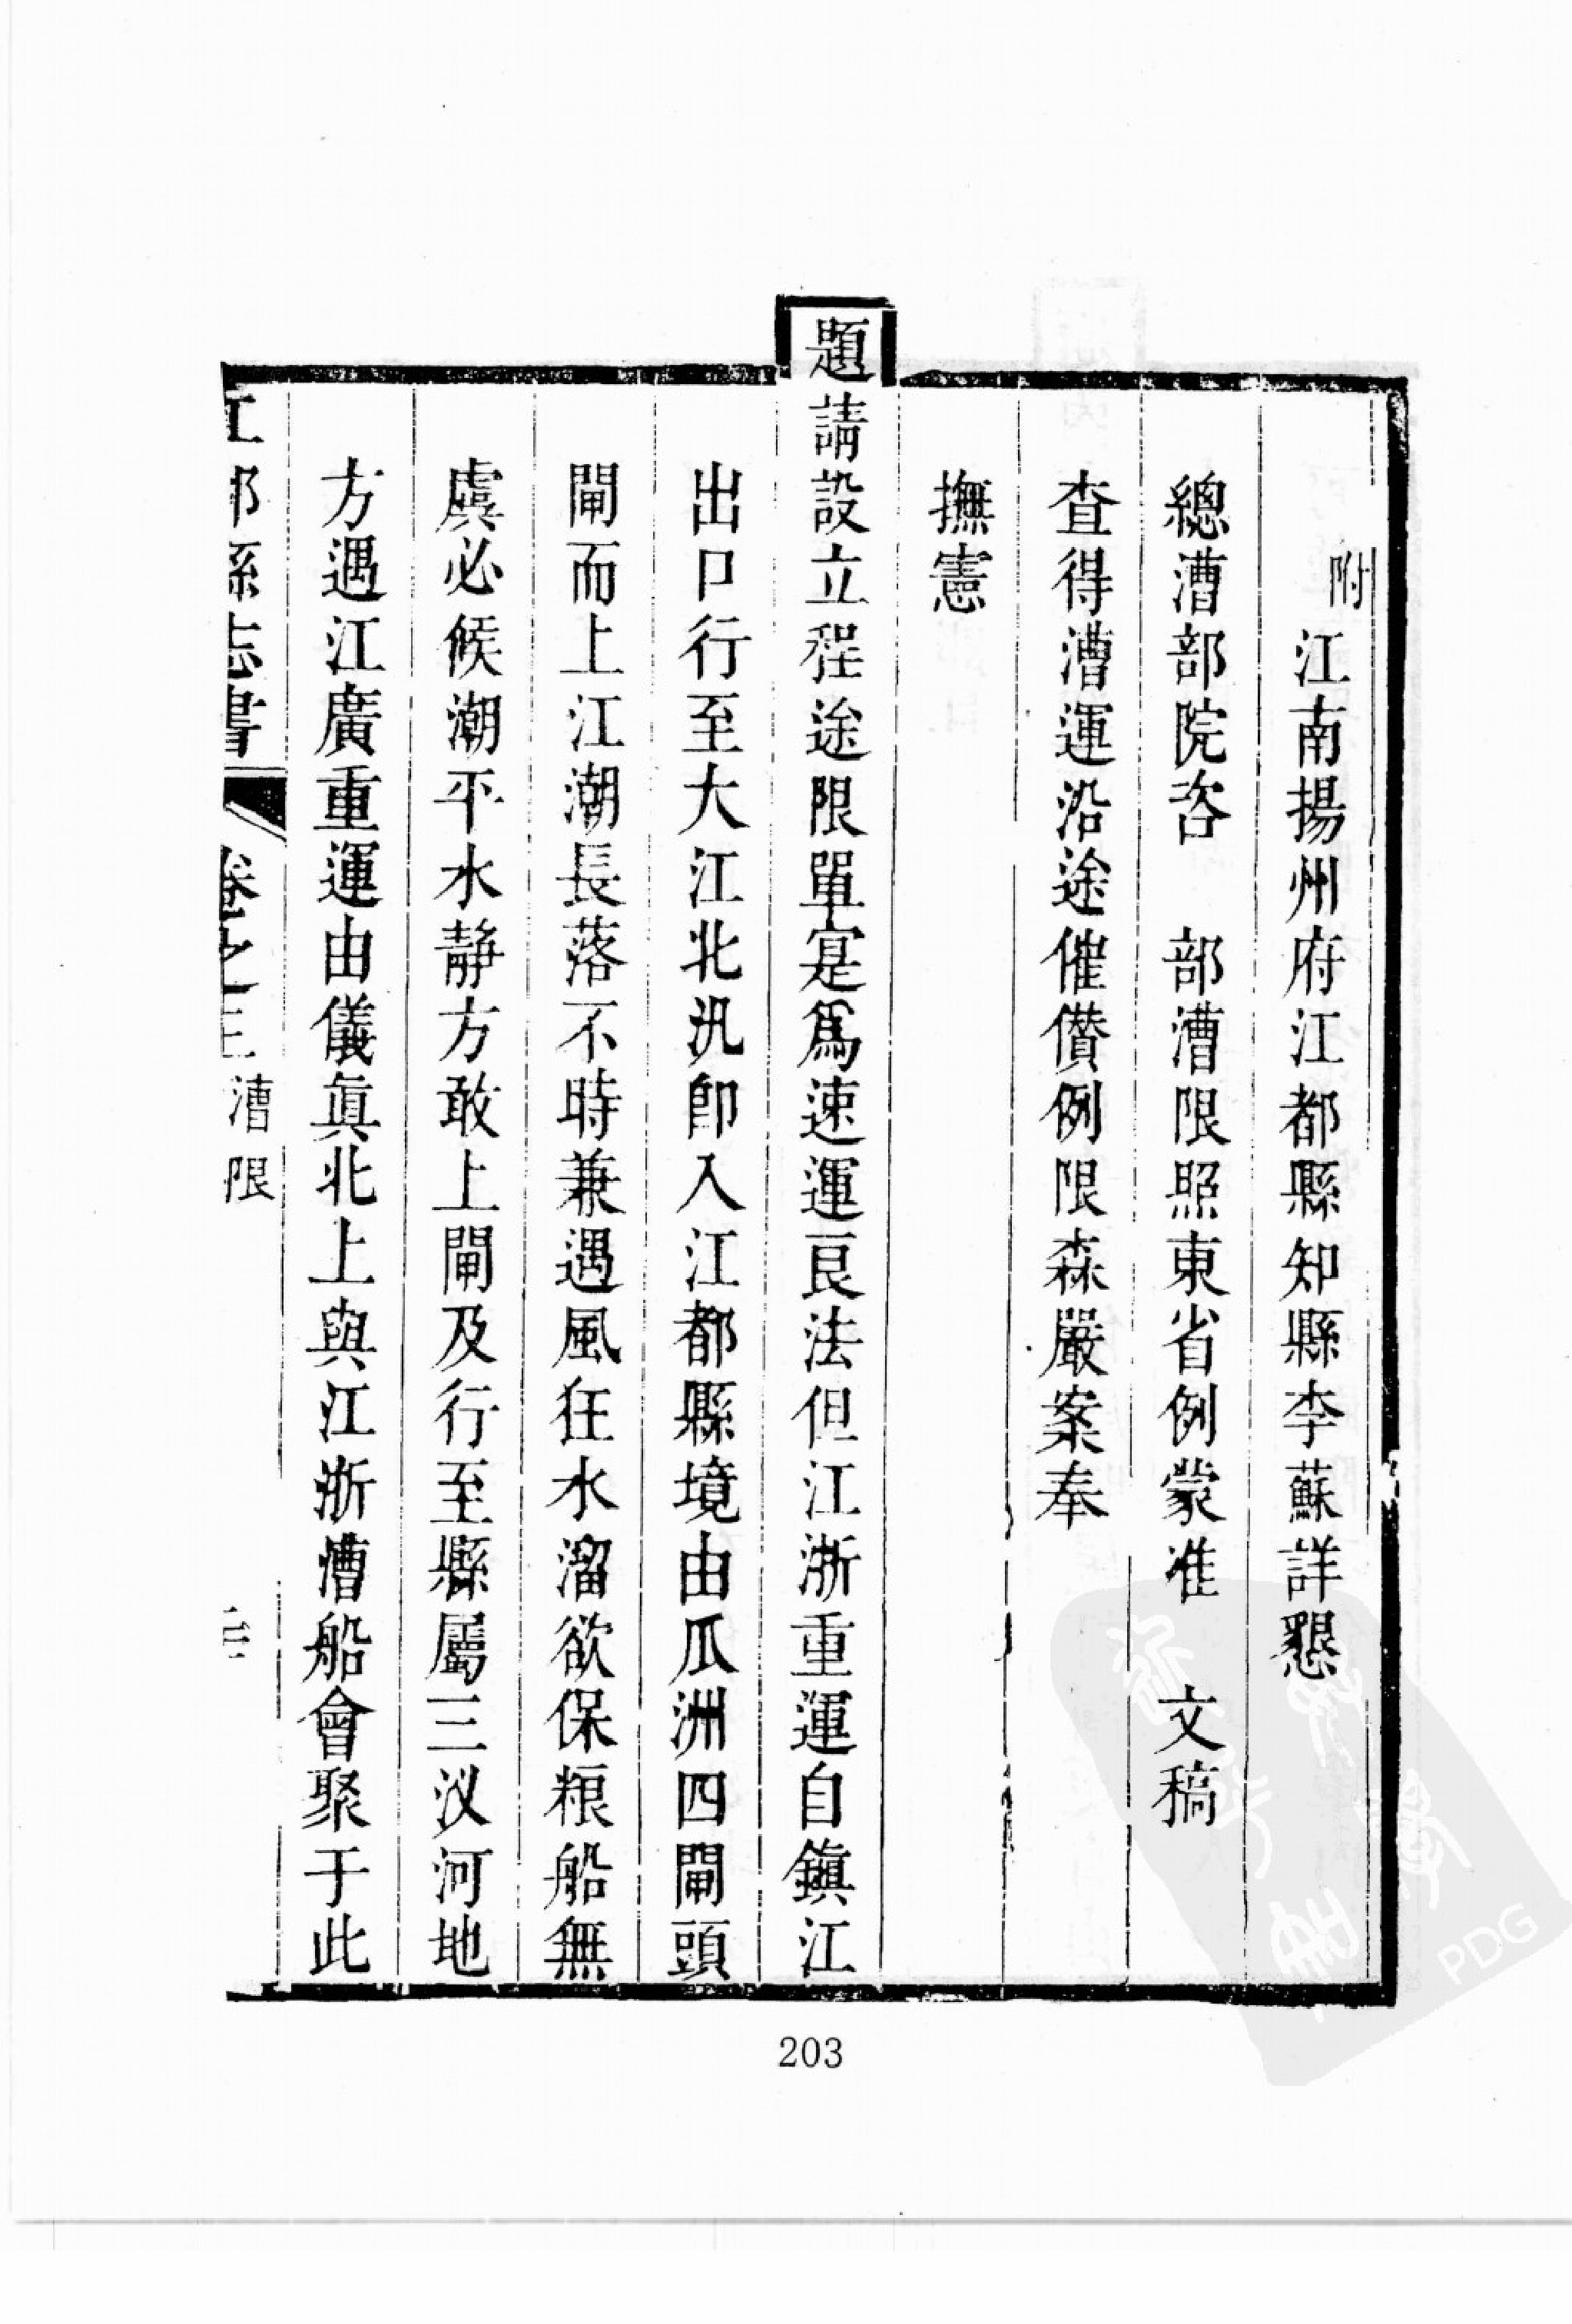 附江南揚州府江都縣知縣李蘇詳懇
總漕部院咨　部漕限照東省例蒙准　文稿
查得漕運沿途催儹例限森嚴案奉
撫憲
題請設立程途限單寔爲速運良法但江浙重運自鎮江
出口行至大江北汛卽入江都縣境由瓜洲四閘頭
閘而上江潮長落不時兼遇風狂水溜欲保粮船無
虞必候潮平水靜方敢上閘及行至縣屬三汊河地
方遇江廣重運由儀眞北上與江浙漕船會聚于此
江都縣志書　卷之三漕限
203
PDG